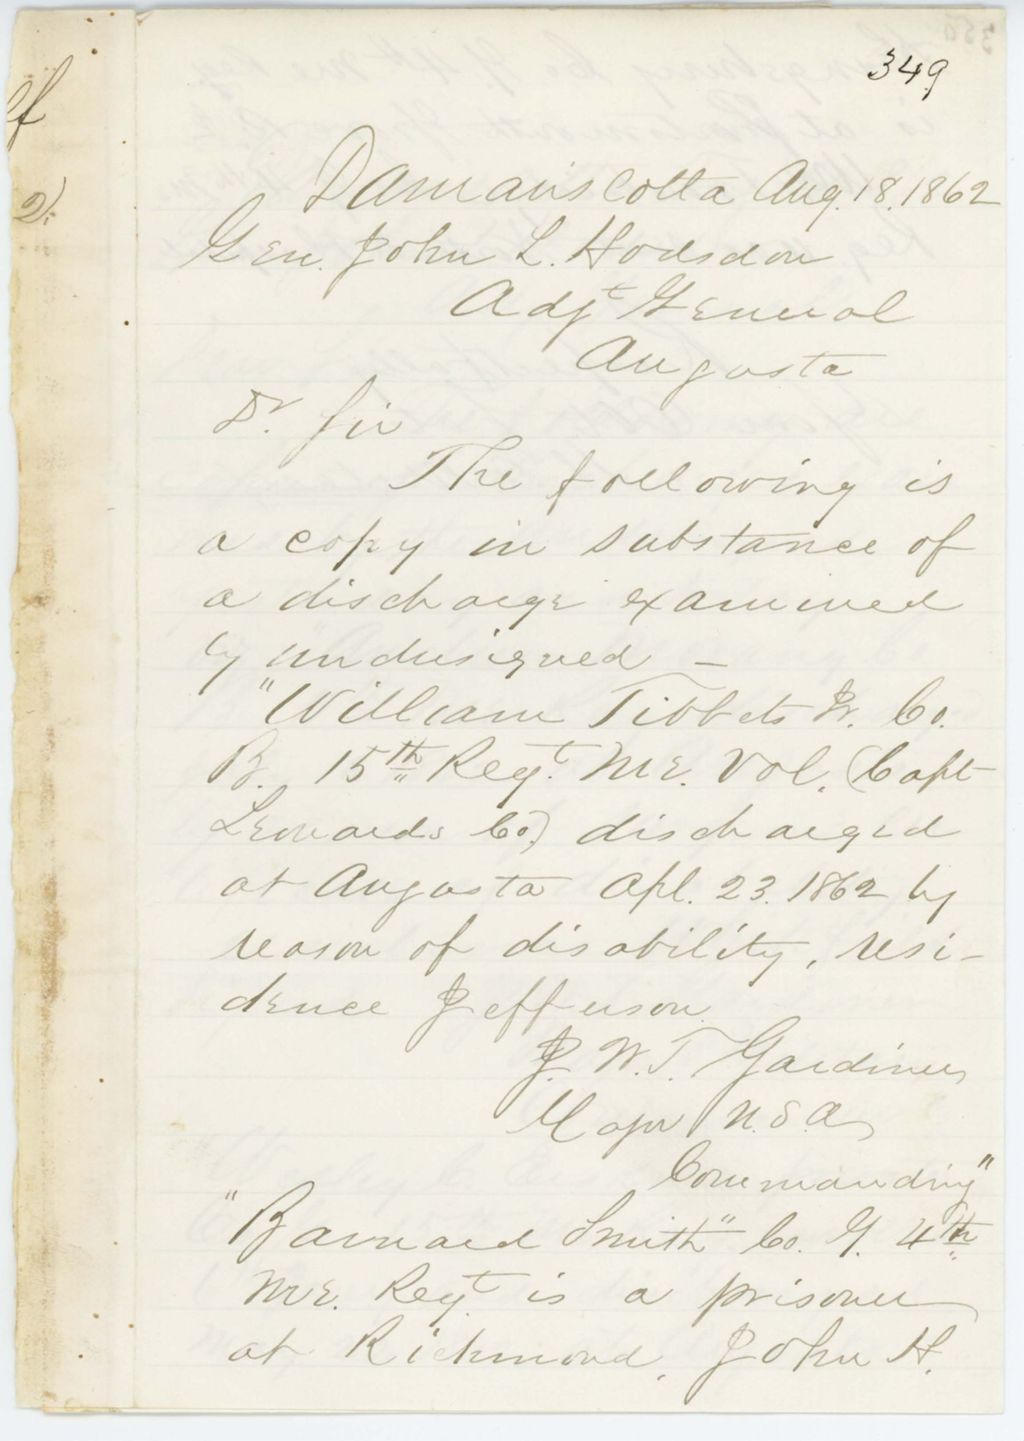 349
Damariscotta Aug. 18. 1862
Gen. John L. Hodsdon
Adjt General
Augusta
Dr. Sir
The following is
a copy in substance of
a discharge examined
by undersigned —
"William Tibbets Jr. Co.
B. 15th Regt. Me. Vol. (Capt
Leonards Co.) discharged
at Augusta Apl. 23. 1862 by
reason of disability, resi-
dence Jefferson.
J. W. T. Gardiner
Major U.S.A.
Commanding"
"Barnard Smith" Co. G. 4th
Me. Regt. is a prisoner
at Richmond, John H.